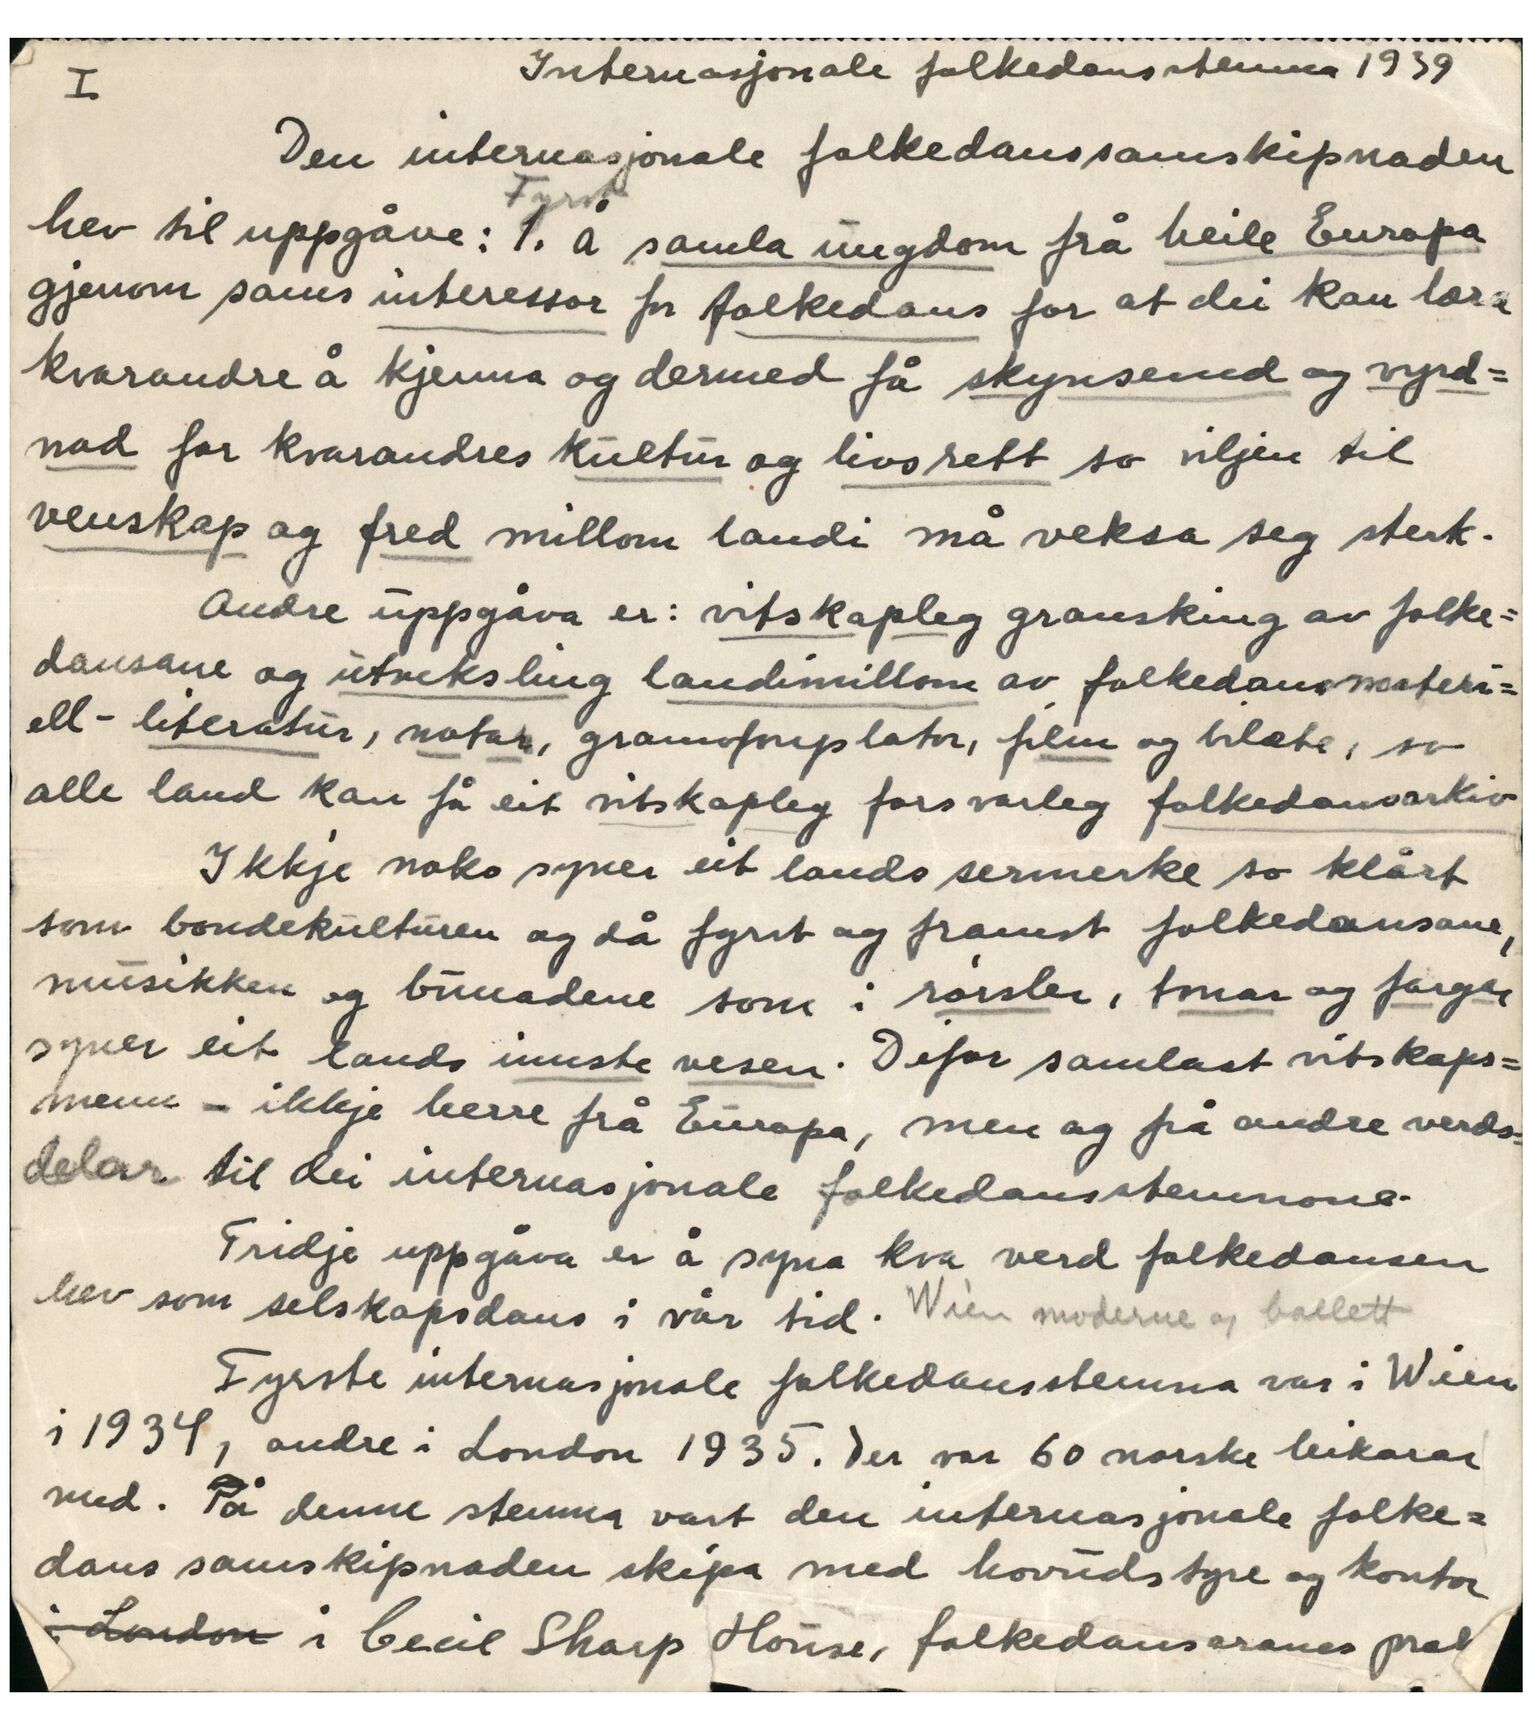 I
Internasjonale folkedansstemna 1939
Den internasjonale folkedanssamskipnaden
Fyrst
hev til uppgåve: 1. å samla ungdom frå heile Europa
gjenom sams interessor for folkedans for at dei kan læra
kvarandre å kjenna og dermed få skynsemd og vyrd=
nad for kvarandres kultur og livsrett so viljen til
venskap og fred millom landi må veksa seg sterk.
Andre uppgåva er: vitskapleg gransking av folke=
dansane og utveksling landimillom av folkedansmateri=
ell - literatur, notar, gramofonplator, film og bilæte, so
alle land kan få eit vitskapleg forsvarleg folkedansarkiv
Ikkje noko syner eit lands sermerke so klårt
som bondekulturen og då fyrst og framst folkedansane,
musikken og bunadene som i rørsler, tonar og farger
syner eit lands inste vesen. Difor samlast vitskaps=
menn - ikkje berre frå Europa, men og frå andre verds=
delar til dei internasjonale folkedansstemnone.
Tridje uppgåva er å syna kva verd folkedansen
hev som selskapsdans i vår tid. Wien moderne og ballett
Fyrste internasjonale folkedansstemna var i Wien
i 1934, andre i London 1935. Der var 60 norske leikarar
med. På denne stemna vart den internasjonale folke=
dans samskipnaden skipa med hovudstyre og kontor
i London i Cecil Sharp House, folkedansaranes